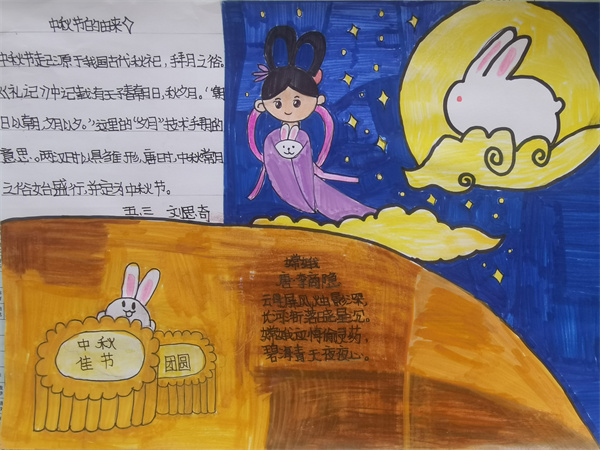 中秋节的由来
中秋节起源于我国古代秋祀、拜月之俗。
《礼记》中记载有天子春朝日，秋夕月。“朝
日以朝，夕月以夕。”这里的“夕月”技术拜月的
意思。两汉时以具雏形，唐时，中秋赏月
之俗始盛行，并定为中秋节。
五.三 刘思奇
嫦娥
唐 李商隐
云母屏风烛影深，
长河渐落晓星沉。
嫦娥应悔偷灵药，
碧海青天夜夜心。
中秋
佳节
团圆